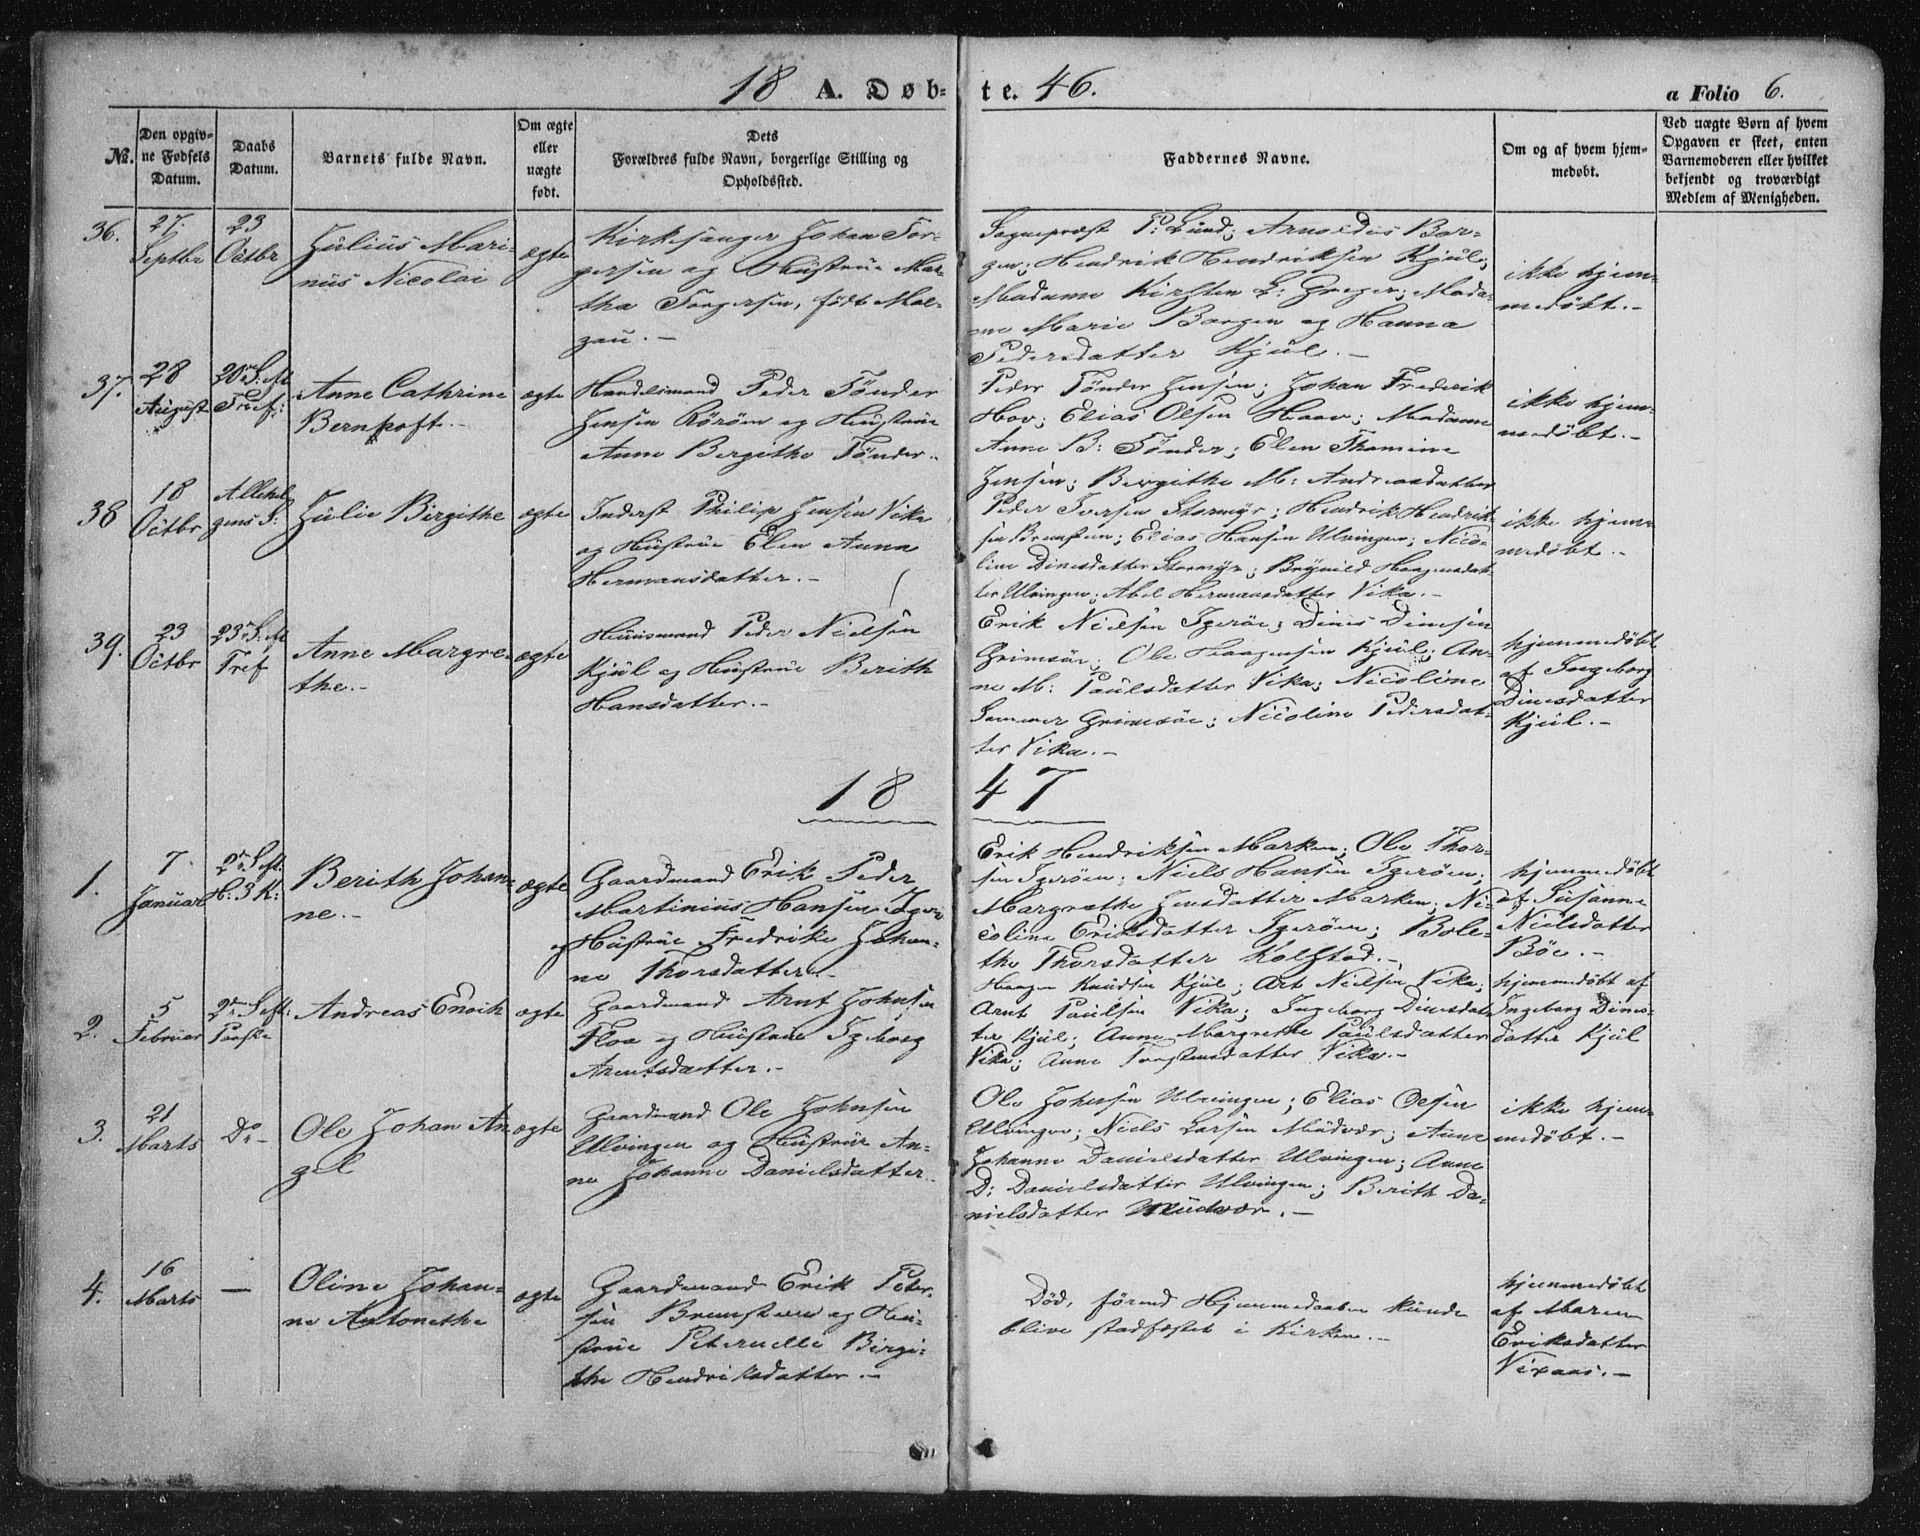 18 A. Døb- te. 46. a Folio 6.
No. Den opgiv-
ne Fødsels
Datum. Daabs
Datum. Barnets fulde Navn. Om ægte
eller
uægte
født. Dets
Forældres fulde Navn, borgerlige Stilling og
Opholdssted. Faddernes Navne. Om og af hvem hjem-
medøbt. Ved uægte Børn af hvem
Opgaven er skeet, enten
Barnemoderen eller hvilket
bekjendt og troværdigt
Medlem af Menigheden.
36.
27.
Septbr
23
Octbr
Julius Mari-
nus Nicolai
ægte
Kirkesanger Johan Tor-
gersen og Hustrue Mar-
tha Torgersen, født Mol-
zau.-
Sognepræst P: Lund; Arnoldus Bor-
gen; Hendrik Hendriksen Kjul;
Madame Kirsten L: Greger; Mada-
me Marie Borgen og Hanna
Pedersdatter Kjul.-
ikke hjem-
medøbt.-
37.
28
August
20de S. eft
Tref:
Anne Cathrine
Bernhoft.-
ægte
Handelsmand Peder Tønder
Jensen Röröen og Hustrue
Anne Bergithe Tønder.
Peder Tønder Jensen; Johan Frederik
Hov; Elias Olsen Haav; Madame
Anne B: Tønder; Elen Thomine
Jensen; Bergithe M: Andreasdatter
ikke hjem-
medøbt.-
38
18
Octbr
Allehel
gens S:
Julie Birgithe
ægte
Inderst Philip Jensen Vika
og Hustrue Elen Anna
Hermansdatter.-
Peder Iversen Stormyr; Hendrik Hendrik-
sen Bremsteen; Elias Hansen Ulvingen; Nico-
line Dinesdatter Stormyr; Brynild Haagensdat-
ter Ulvingen; Abel Hermansdatter Vika.-
ikke hjem-
medøbt.-
39.
23
Octbr
23de S. eft
Tref
Anne Margre-
the.-
ægte
Huusmand Peder Nielsen
Kjul og Hustrue Berith
Hansdatter.-
Erik Nielsen Igeröe; Dines Dinesen
Grimsöe; Ole Haagensen Kjul; An-
ne M: Paulsdatter Vika; Nicoline
Sommer Grimsöe; Nicoline Pedersdat-
ter Vika.-
hjemmedøbt
af Ingeborg
Dinesdatter
Kjul.-
18 47
1.
7
Januar
2de S. eft.
H: 3 K:
Berith Johan-
ne.-
ægte
Gaardmand Erik Peder
Martinius Hansen Iger
og Hustrue Fredrike Johan-
ne Thorsdatter.-
Erik Hendriksen Marken; Ole Thor-
sen Igeröen; Niels Hansen Igeröen;
Margrethe Jensdatter Marken; Ni-
coline Eriksdatter Igeröen; Bole-
the Thorsdatter Kolstad.-
hjemmedøbt
af Susanne
Nielsdatter
Böe.-
2.
5
Februar
2de S. eft:
Paaske
Andreas Enoch
ægte
Gaardmand Arnt Johnsen
Floe og Hustrue Igeborg
Arentsdatter.-
Haagen Knudsen Kjul; Art Nielsen Vika;
Arnt Paulsen Vika; Ingeborg Dinesdat-
ter Kjul; Anne Margrethe Paulsdatter
Vika; Anne Torstensdatter Vika.-
hjemmedøbt af
Ingeborg Dines-
datter Kjul
3.
21
Marts
Do-
Ole Johan An-
gel
ægte
Gaardmand Ole Johnsen
Ulvingen og Hustrue An-
ne Johanne Danielsdatter.
Ole Johnsen Ulvingen; Elias Olsen
Ulvingen; Niels Larsen Mudvær; Anne
Johanne Danielsdatter Ulvingen; Anne
D: Danielsdatter Ulvingen; Berith Da-
nielsdatter Mudvær.-
ikke hjem-
medøbt.-
4.
16
Marts
—
Oline Johan-
ne Antonethe
ægte
Gaardmand Erik Peter-
sen Bremsteen og Hu-
strue Peternelle Birgi-
the Hendriksdatter.-
Död, förend Hjemmedaaben kunde
blive stadfæstet i Kirken.-
hjemmedøbt
af Maren
Eriksdatter
Vixaas.-